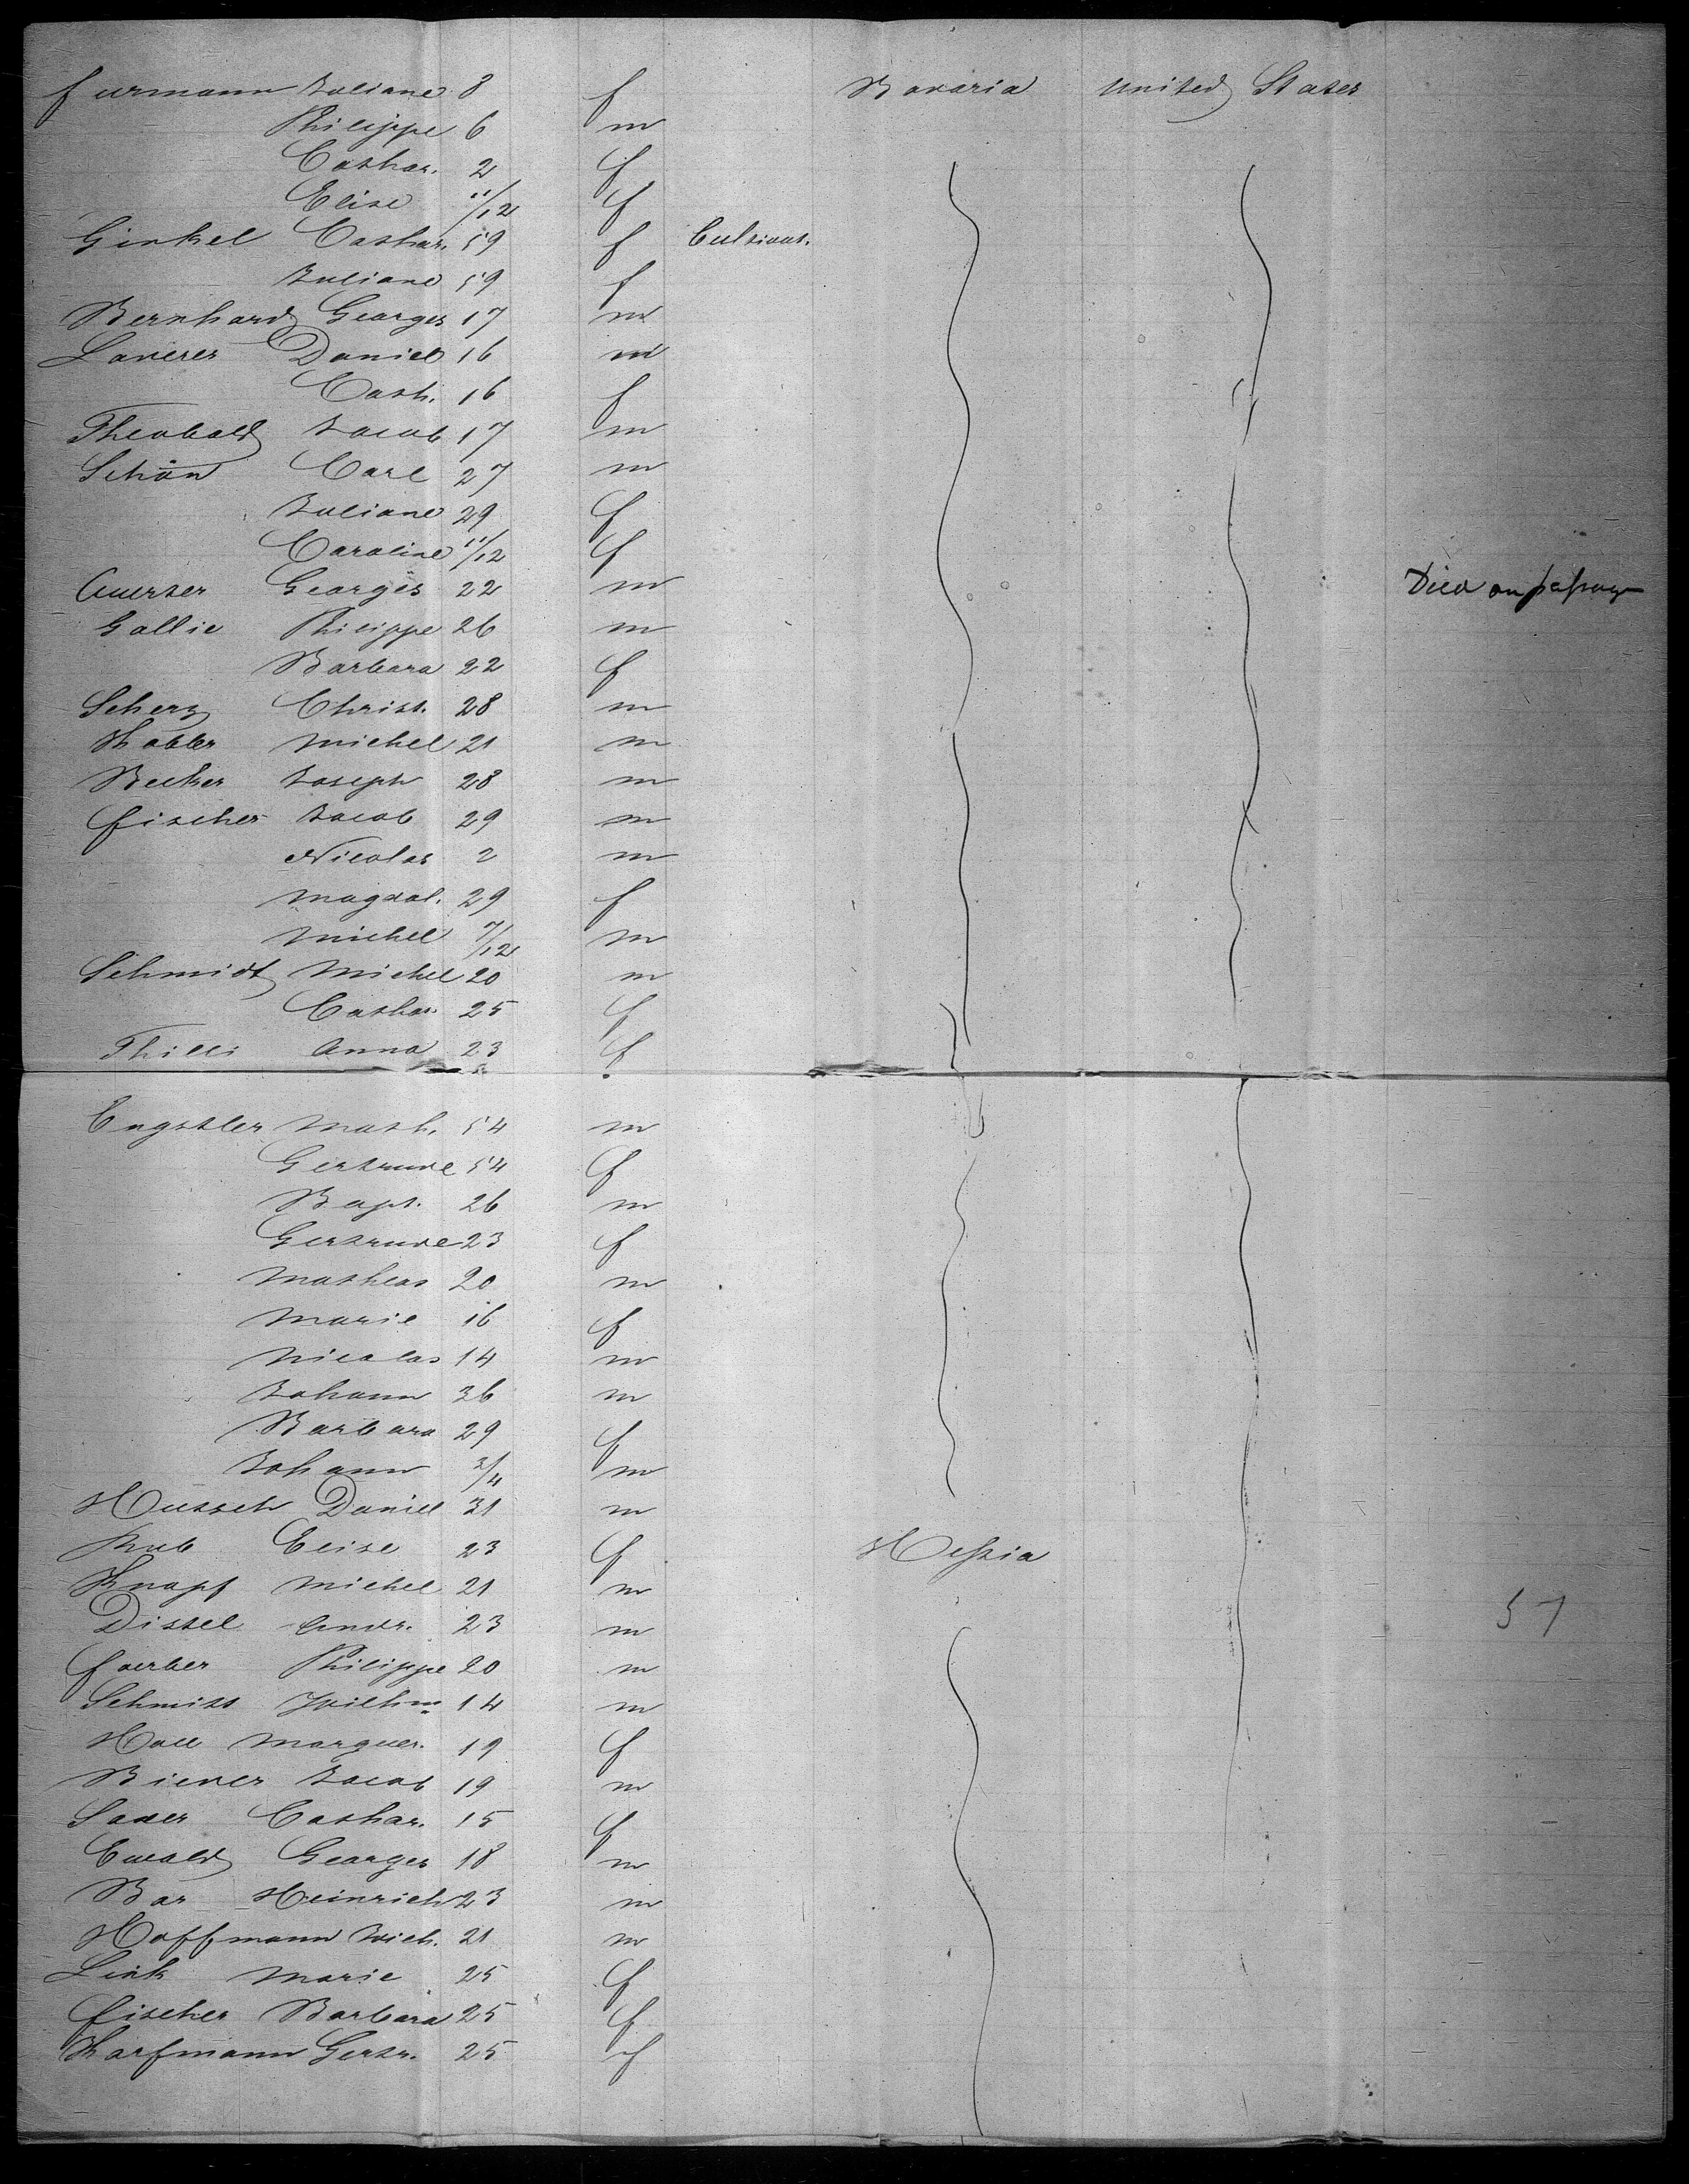 furmann Juliane 8 f Bavaria United States
Philippe 6 m
Cathar. 2 f
Elise 11/12 f
Ginkel Cathar. 59 f Cultivat.
Juliane 59 f
Bernhard Georges 17 m
Lauerer Daniel 16 m
Cath. 16 f
Theobald Jacob 17 m
Schön Carl 27 m
Juliane 29 f
Caroline 11/12 f
Georges 22 m Died on passage
Gallie Philippe 26 m
Barbara 22 f
Scherz Christ. 28 m
Kobler Michel 21 m
Becker Joseph 28 m
fischer Jacob 29 m
Nicolas 2 m
Magdal. 29 f
Michel 7/12 m
Schmidt Michel 20 m
Cathar 25 f
Thilli Anna 23 f
Engstler Math. 54 m
Gertrude 54 f
Bapt. 26 m
Gertrude 23 f
Matheas 20 m
Marie 16 f
Nicolas 14 m
Johann 36 m
Barbara 29 f
Johann 3/4 m
Hutsch Daniel 31 m
Kub Elise 23 f Hessia
Knapf Michel 21 m
Distel Andr. 23 m 57
faerber Philippe 20 m
Schmitt Wilhm 14 m
Holl Marguer. 19 f
Biener Jacob 19 m
Sader Cathar. 15 f
Ewald Georges 18 m
Bar Heinrich 23 m
Hoffmann Wilh. 21 m
Link Marie 25 f
fischer Barbara 25 f
Karfmann Gertr. 25 f